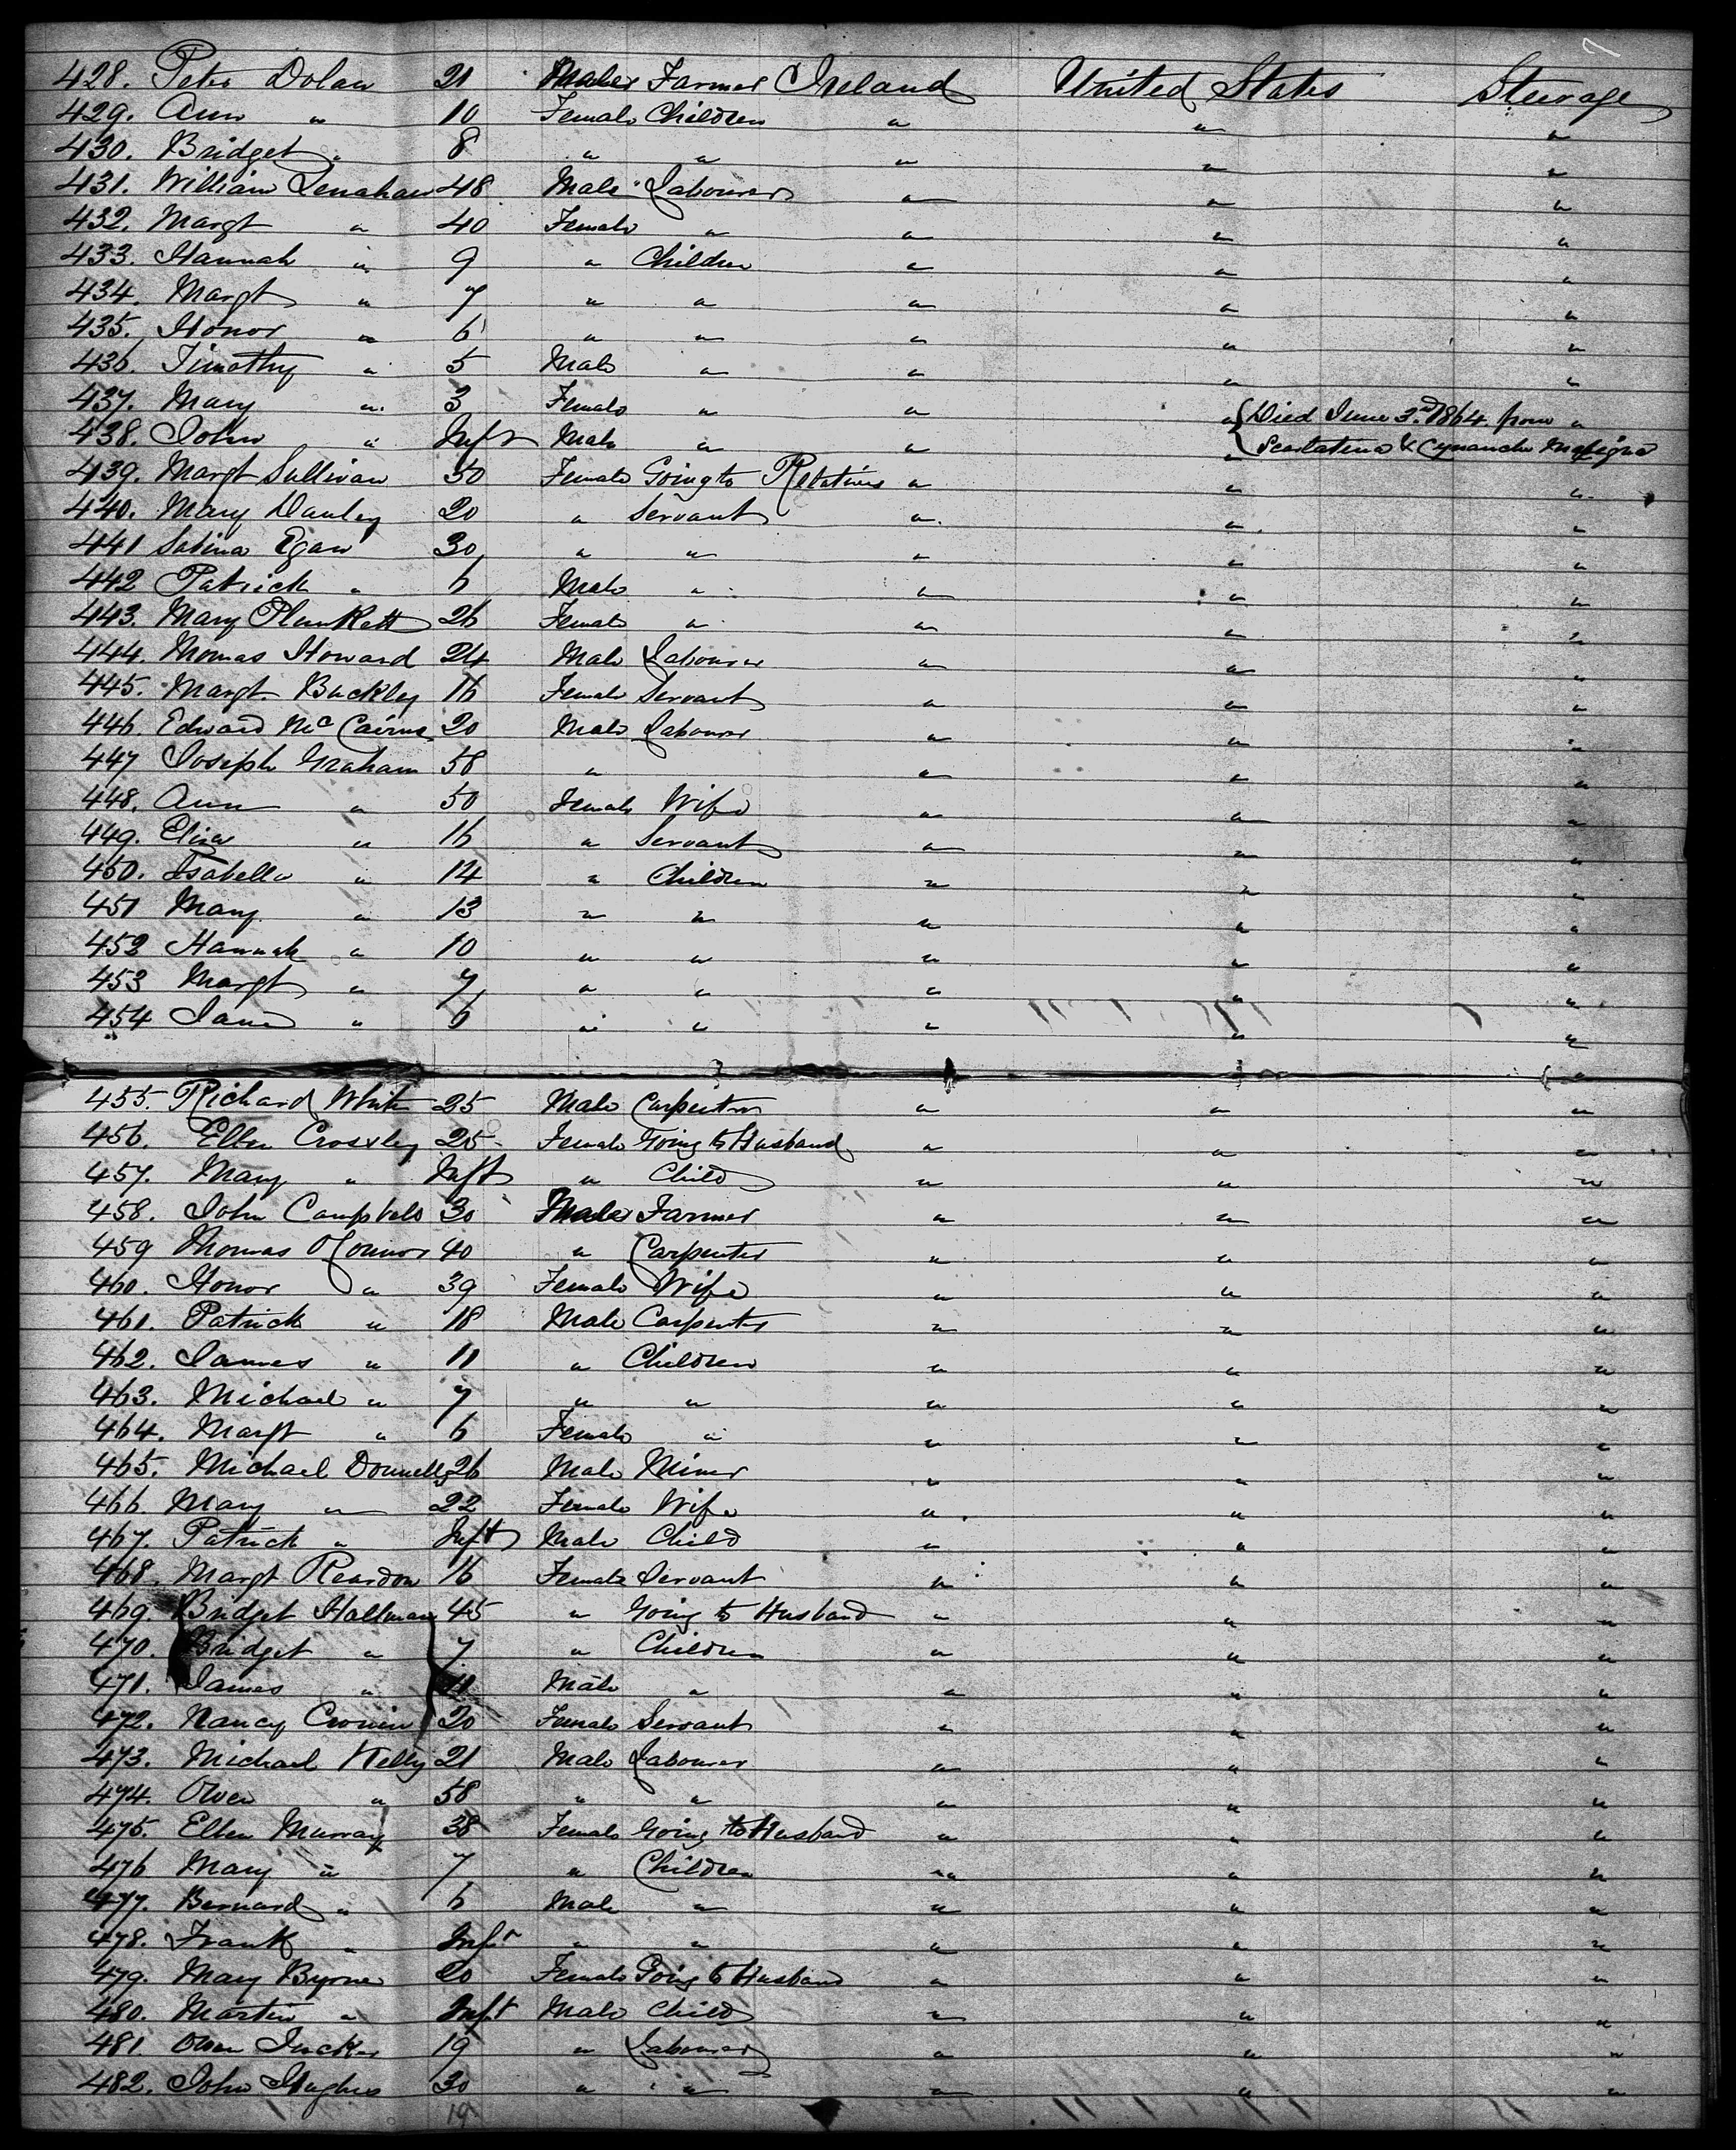 428. Peter Dolan 21 Male Farmer Ireland United States Steerage
429. Ann " 10 Female Children " " "
430. Bridget " 8 " " " " "
431. William Lenahan 48 Male Labourer " " "
432. Margt " 40 Female " " " "
433. Hannah " 9 " Children " " "
434. Margt " 7 " " " " "
435. Honor " 6 " " " " "
436. Timothy " 5 Male " " " "
437. Mary " 3 Female " " " Died June 3rd 1864 from "
438. John " Inft Male " " " Scarlatina & Cynanche Maligna "
439. Margt Sullivan 50 Female Going to Relatives " " "
440. Mary Danley 20 " Servant " " "
441 Sabina Egan 30 " " " " "
442 Patrick " 6 Male " " " "
443. Mary Plunkett 26 Female " " " "
444. Thomas Howard 24 Male Labourer " " "
445. Margt Buckley 16 Female Servant " " "
446. Edward Mc Cairns 20 Male Labourer " " "
447 Joseph Graham 58 " " " "
448. Ann " 50 Female Wife " " "
449. Eliza " 16 " Servant " " "
450. Isabella " 14 " Children " " "
451 Mary " 13 " " " " "
452 Hannah " 10 " " " " "
453 Margt " 7 " " " " "
454 Jane " 6 " " " " "
455. Richard White 25 Male Carpenter " " "
456. Ellen Crossley 25 Female Going to Husband " " "
457. Mary " Inft " Child " " "
458. John Campbell 30 Male Farmer " " "
459 Thomas O'Connor 40 " Carpenter " " "
460. Honor " 39 Female Wife " " "
461. Patrick " 18 Male Carpenter " " "
462. James " 11 " Children " " "
463. Michael " 7 " " " " "
464. Margt " 6 Female " " " "
465. Michael Donnelly 26 Male Miner " " "
466. Mary " 22 Female Wife " " "
467. Patrick " Inft Male Child " " "
468. Margt Reardon 16 Female Servant " " "
469. Bridget Hallman 45 " Going to Husband " " "
470. Bridget " 7 " Children " " "
471. James " 11 Male " " " "
472. Nancy Cronin 20 Female Servant " " "
473. Michael Kelly 21 Male Labourer " " "
474. Owen " 58 " " " " "
475. Ellen Murray 38 Female Going to Husband " " "
476 Mary " 7 " Children " " "
477. Bernard " 6 Male " " " "
478. Frank " Inft " " " " "
479. Mary Byrne 20 Female Going to Husband " " "
480. Martin " Inft Male Child " " "
481. Owen Tucker 19 " Labourer " " "
482. John Hughes 30 " " " " "
19